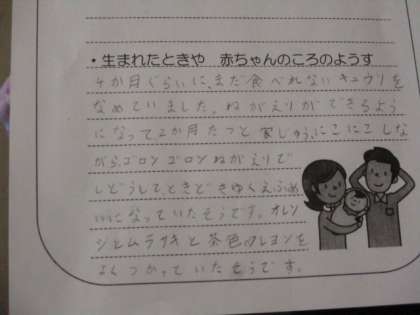 ・生まれたときや 赤ちゃんのころのようす
4か月ぐらいに、まだ食べれないキュウリを
なめていました。ねがえりができるよう
になって2か月たつと家じゅう、にこにこしな
がら、ゴロンゴロンねがえりで
いどうして、ときどきゆくえふめ
いになっていたそうです。オレン
ジとムラサキと茶色のクレヨンを
よくつかっていたそうです。